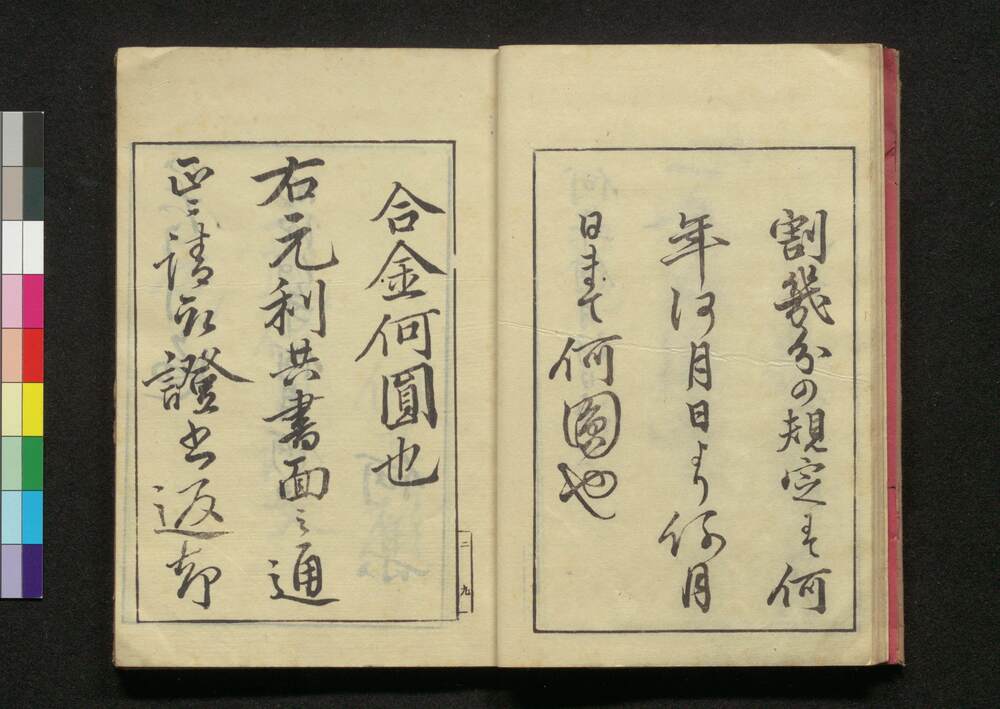 割幾分の規定にて何
年何月日より何月
日まて何圓也
合金何圓也
右元利共書面之通
正ニ請取證書返却
二九